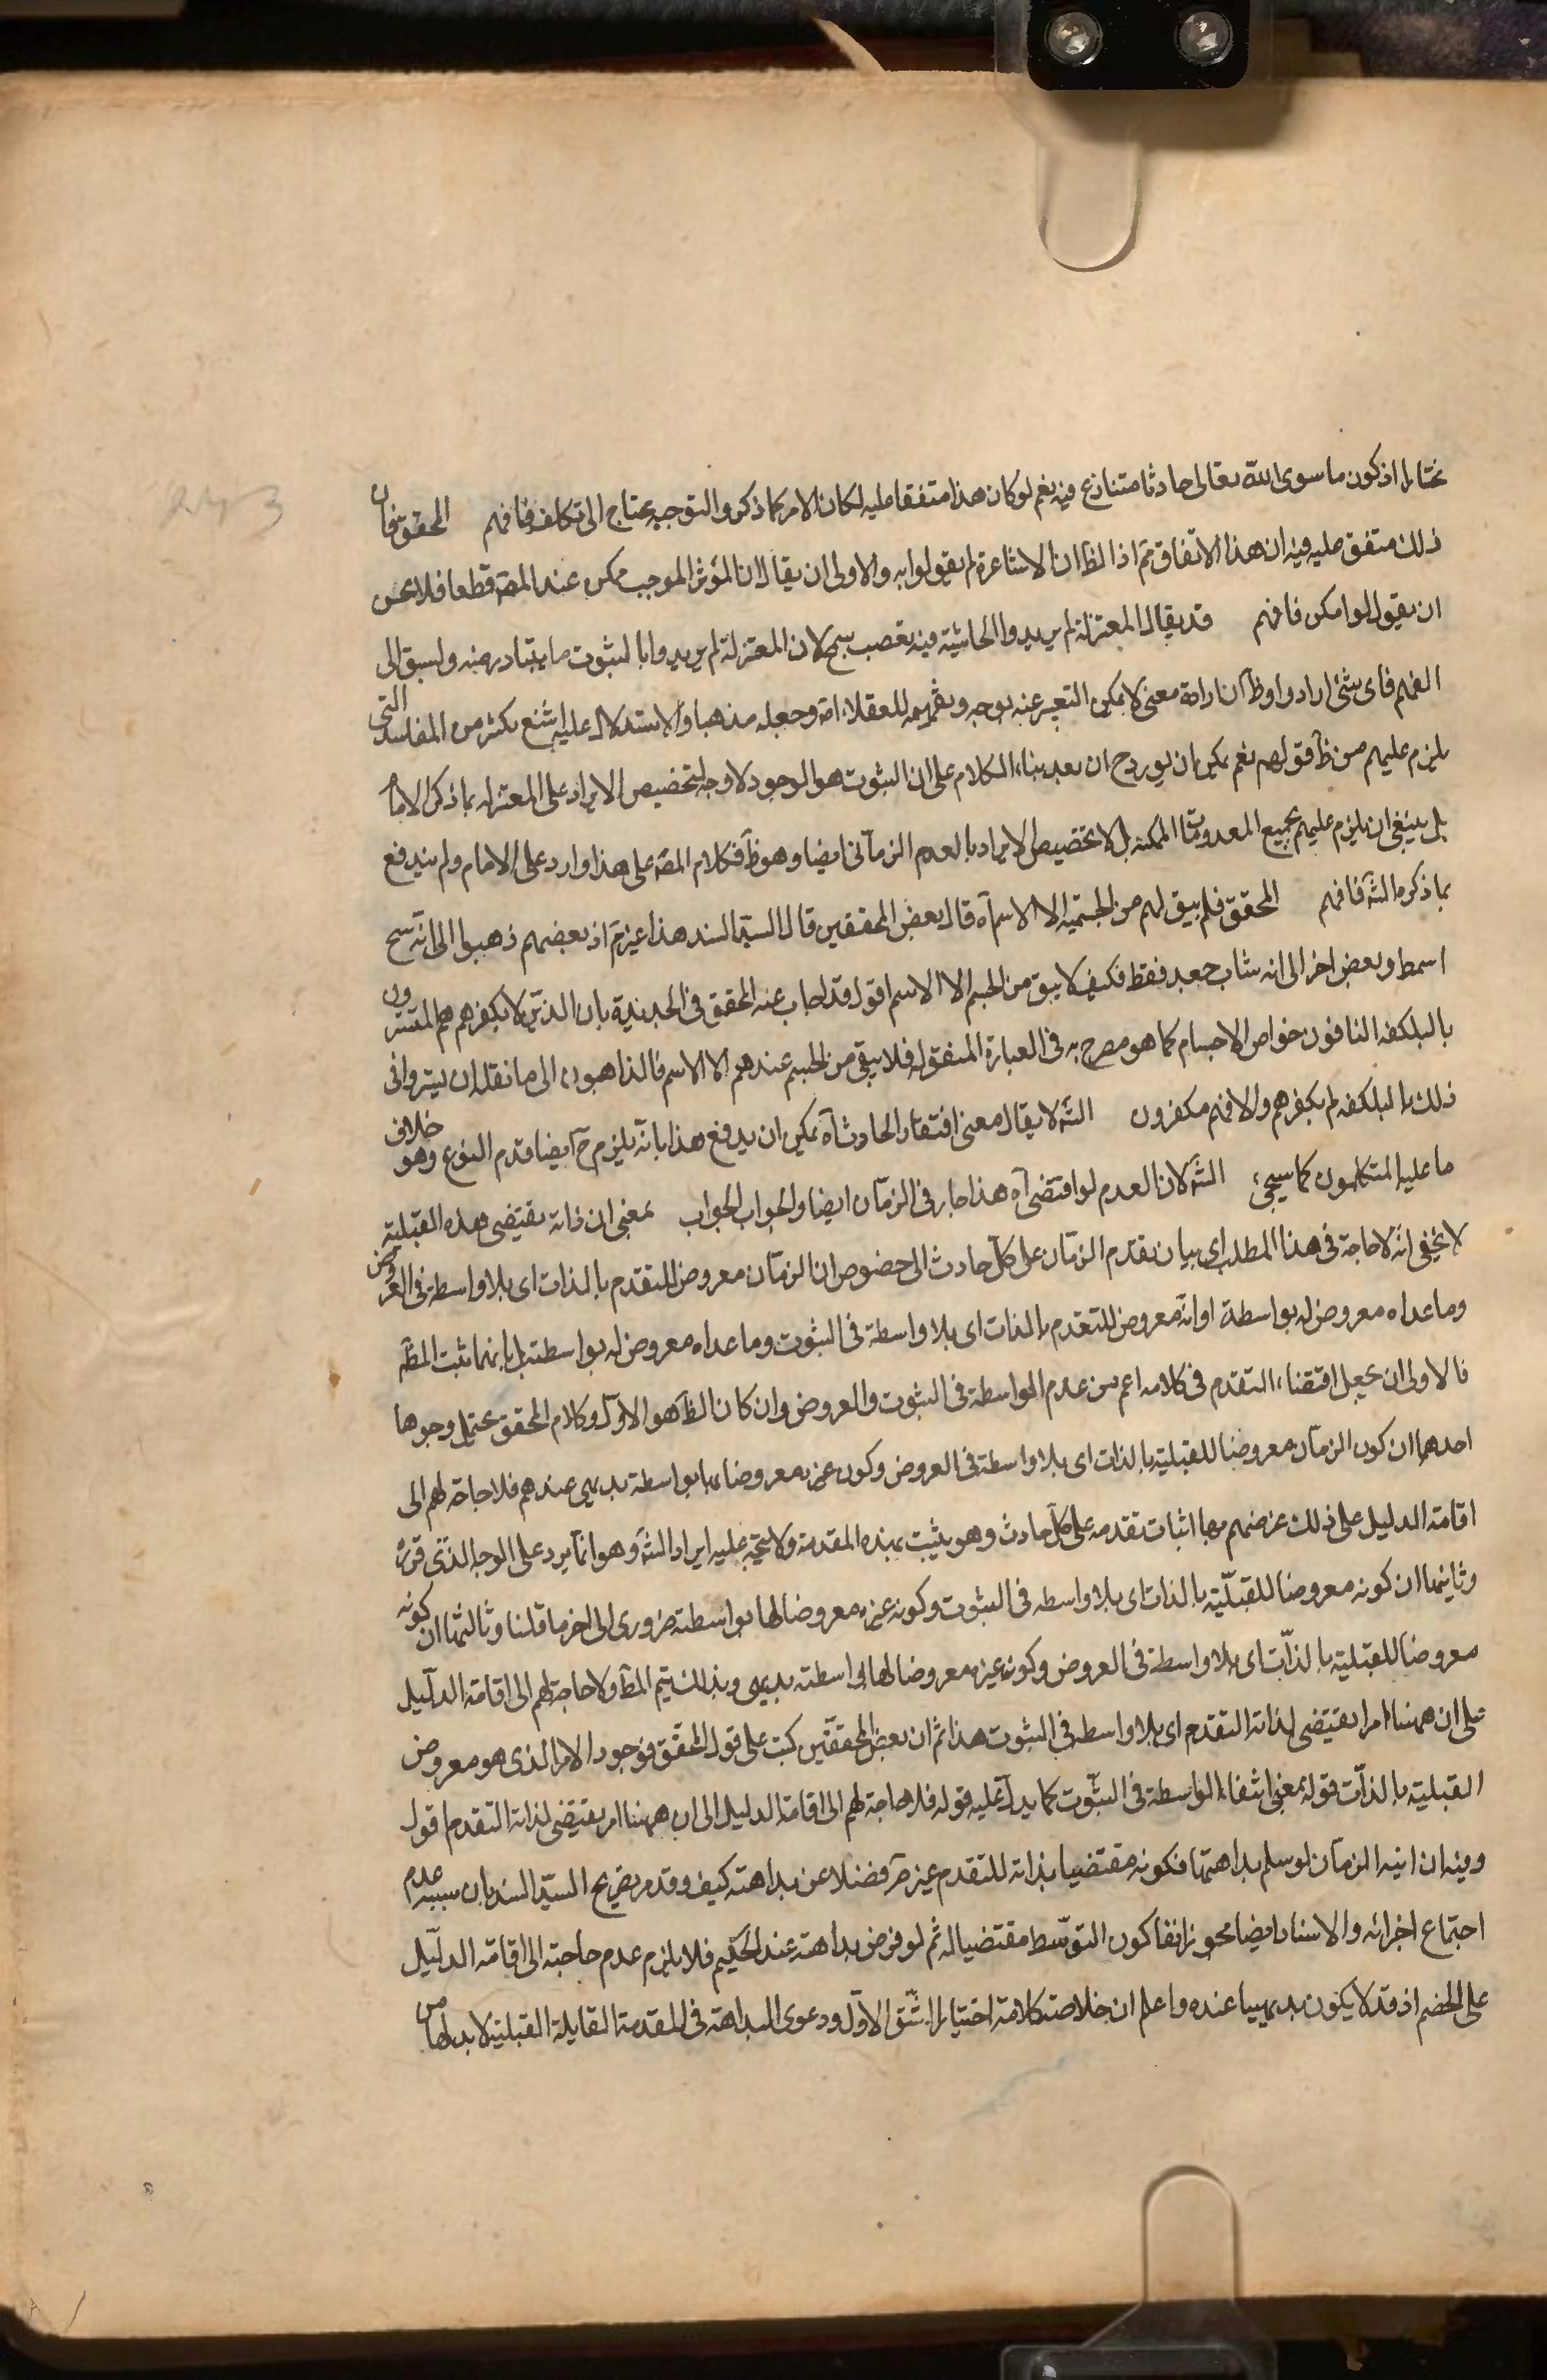 مختارا اذ كون ما سوى الله تعالى حادثا متنازع فيه نعم لو كان هذا متفقا عليه لكان الامر كما ذكر والتوجيه يحتاج الى تكلف فافهم المحقق فان
ذلك متفق عليه فيه ان هذا الاتفاق ثم اذ الظ ان الاشاعرة لم يقولوا به والاولى ان يقال ان المؤثر الموجب ممكن عند المصه قطعا فلا يحسن
ان يقول لو امكن فافهم قد يقال المعتزلة لم يريدوا الحاشية فيه تعصب سمج لان المعتزلة لم يريدوا بالثبوت ما يتبادر منه ولسبق الى
الفهم فاى شئ ارادوا وظ ان ارادة معنى لا يمكن التعبير عنه بوجه وتفهيمه للعقلاء اه وجعله مذهبا والاستدلال عليه اشنع بكثير من المفاسد التى
يلزم عليهم من ظ قولهم نعم يمكن ان يورد ح ان بعد بناء الكلام على ان الثبوت هو الوجود لا وجه لتخصيص الايراد على المعتزله بما ذكر الامام
بل ينبغى ان يلزم عليهم بجميع المعدومات الممكنه بل لا تخصيص الايراد بالعدم الزمانى ايضا وهو ظ فكلام المصه على هذا وارد على الامام ولم يندفع
بما ذكره الشه فافهم المحقق فلم يبق لهم من الجسميه الا الاسم اه قال بعض المحققين قال السيد السند هذا غير تم اذ بعضهم ذهبوا الى انه شيخ
اسمط وبعض اخر الى انه شاب جعد فقط فكيف لا يبق من الجسم الا الاسم اقول قد اجاب عنه المحقق فى الجديدة بان الذين لا يكفرهم هم المتسترون
بالبلكفه النافون خواص الاجسام كما هو مصرح به فى العبارة المنقوله فلا يبقى من الجسم عندهم الا الاسم فالذاهبون الى ما نقله ان يستروا فى
ذلك بالبلكفه لم يكفرهم والا فهم مكفرون الشه لا يقال معنى افتقار الحادث اه يمكن ان يدفع هذا بانه يلزم ح ايضا قدم النوع وهو خلاف
ما عليه المتكلمون كما سيجئ الشه لان العدم لو اقتضى اه هذا جار فى الزمان ايضا والجواب الجواب بمعنى ان ذاته يقتضى هذه القبلية
لا يخفى انه لا حاجة فى هذا المطلب اى بيان تقدم الزمان على كل حادث الى خصوص ان الزمان معروض للتقدم بالذات اى بلا واسطه فى العروض
وما عداه معروض له بواسطة او انه معروض للتقدم بالذات اى بلا واسطه فى الثبوت وما عداه معروض له بواسطته بل بايهما ثبت المط
فالاولى ان يجعل اقتضاء التقدم فى كلامه اعم من عدم الواسطه فى الثبوت والعروض وان كان الظ هو الاول وكلام المحقق يحتمل وجوها
احدهما ان كون الزمان معروضا للقبلية بالذات اى بلا واسطة فى العروض وكون غيره معروضا بها بواسطته بديهى عندهم فلا حاجة لهم الى
اقامة الدليل على ذلك غرضهم بها اثبات تقدمه على كل حادث وهو يثبت بهذه المقدمة ولا يتجه عليه ايراد الشه وهو انما يرد على الوجه الذى قرره
وثانيهما ان كونه معروضا للقبلية بالذات اى بلا واسطه فى الثبوت وكون غيره معروضا لها بواسطته ضرورى الى اخر ما قلنا وثالثهما ان كونه
معروضا للقبلية بالذات اى بلا واسطة فى العروض وكون غيره معروضا لها بواسطته بديهى وبذلك يتم المط ولا حاجة لهم الى اقامة الدليل
على ان ههنا امرا يقتضى لذاته التقدم اى بلا واسطه فى الثبوت هذا ثم ان بعض المحققين كتب على قول المحقق فوجود الامر الذى هو معروض
القبلية بالذات قوله بمعنى انتفاء الواسطة فى الثبوت كما يدل عليه قوله فلا حاجة لهم الى اقامة الدليل الى ان ههنا امر يقتضى لذاته التقدم اقول
وفيه ان انيه الزمان لو سلم بداهتها فكونه مقتضيا بذاته للتقدم غير مم فضلا عن بداهته كيف وقد مر تصريح السيد السند بان سببه عدم
اجتماع اجزائه والاستاد ايضا جوز انفا كون التوسط مقتضيا له ثم لو فرض بداهته عند الحكيم فلا يلزم عدم حاجته الى اقامة الدليل
على الخصم اذ قد لا يكون بديهيا عنده واعلم ان خلاصة كلامه اختيار الشق الاول ودعوى البداهة فى المقدمة القايلة القبلية لا بد لها من